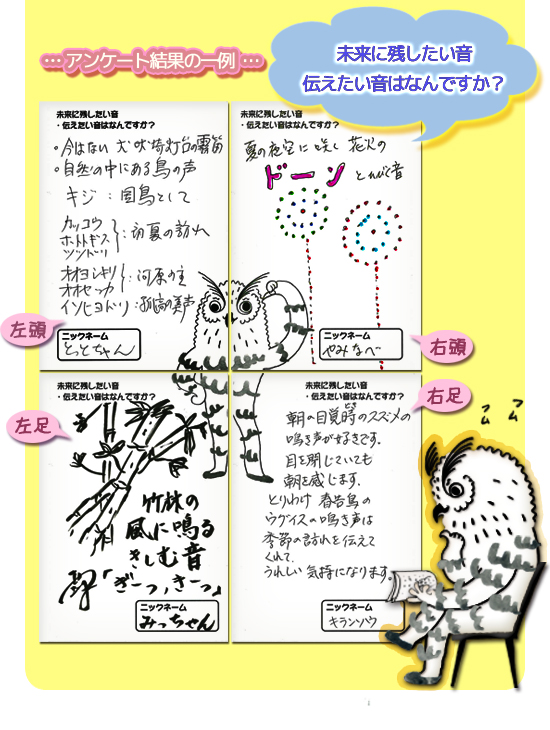 … アンケート結果の一例 …
未来に残したい音
伝えたい音はなんですか？
未来に残したい音
・伝えたい音はなんですか？
・今はない 犬吠埼灯台の霧笛
・自然の中にある鳥の声
キジ：国鳥として
カッコウ
ホトトギス
ツツドリ
：初夏の訪れ
オオヨシキリ
オオセッカ
：河原の主
イソヒヨドリ：孤高の美声
ニックネーム
とっとちゃん
左頭
未来に残したい音
・伝えたい音はなんですか？
夏の夜空に咲く 花火の
ドーン とひびく音
ニックネーム
やみなべ
右頭
未来に残したい音
・伝えたい音はなんですか？
竹林の
風に鳴る
きしむ音
「ぎーっ，きーっ」
ニックネーム
みっちゃん
左足
未来に残したい音
・伝えたい音はなんですか？
朝の目覚時のスズメの
鳴き声が好きです。
目を閉じていても
朝を感じます。
とりわけ 春告鳥の
ウグイスの鳴き声は
季節の訪れを伝えて
くれて、
うれしい 気持になります。
ニックネーム
キランソウ
右足
フム
フム